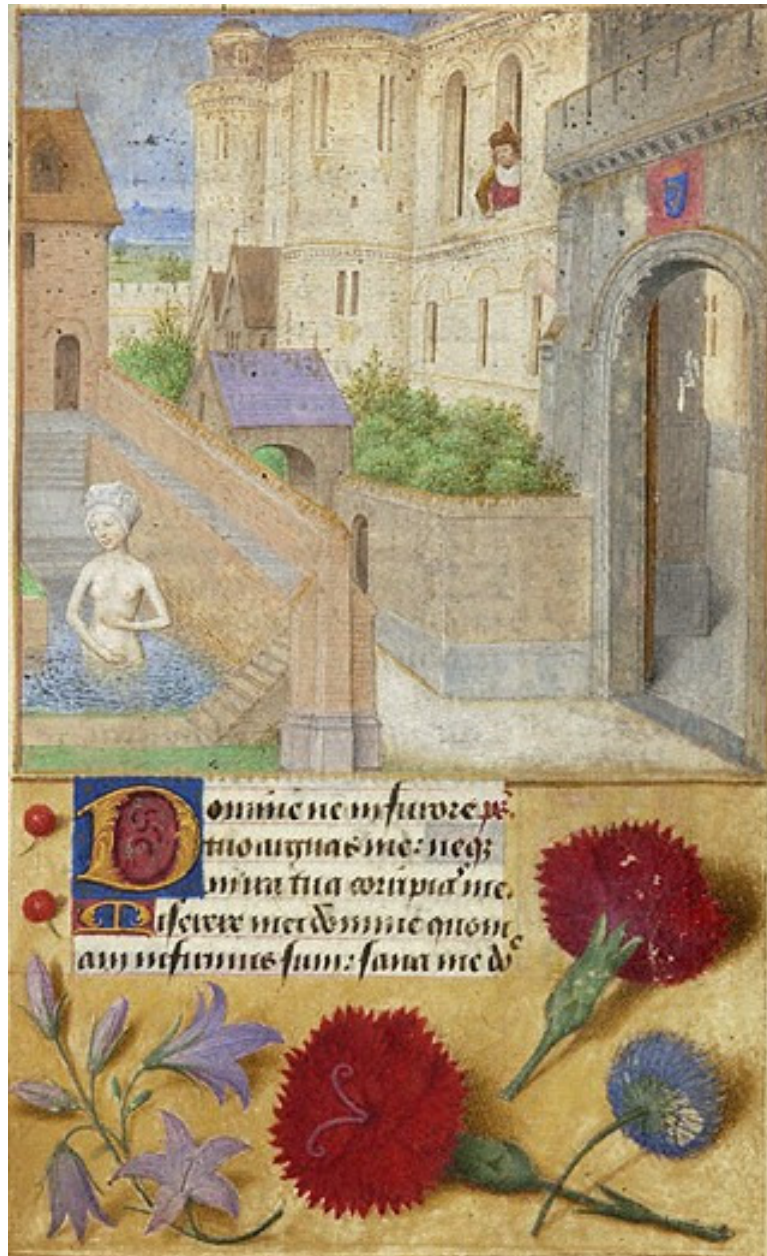 Domine ne in furore ps̄.
tuo arguas me: neq;
in ira tua corripias me.
Miserere mei dōmine quoni
am infirmus sum: sana me dē